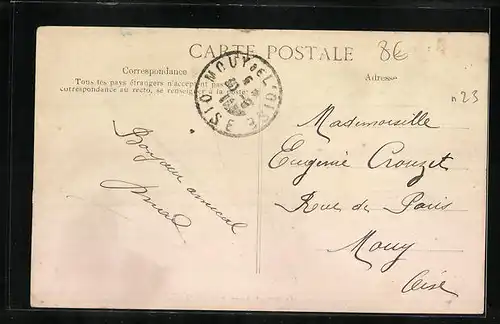 CARTE POSTALE
8€
Correspondance
Tous les pays étrangers n'acceptent pas
correspondance au recto, se renseigner à la poste
Adresse
MOUY DE L'OISE
n 23
Mademoiselle
Eugénie Crouzet
Rue de Paris
Mouy
Oise
Bonjour amical